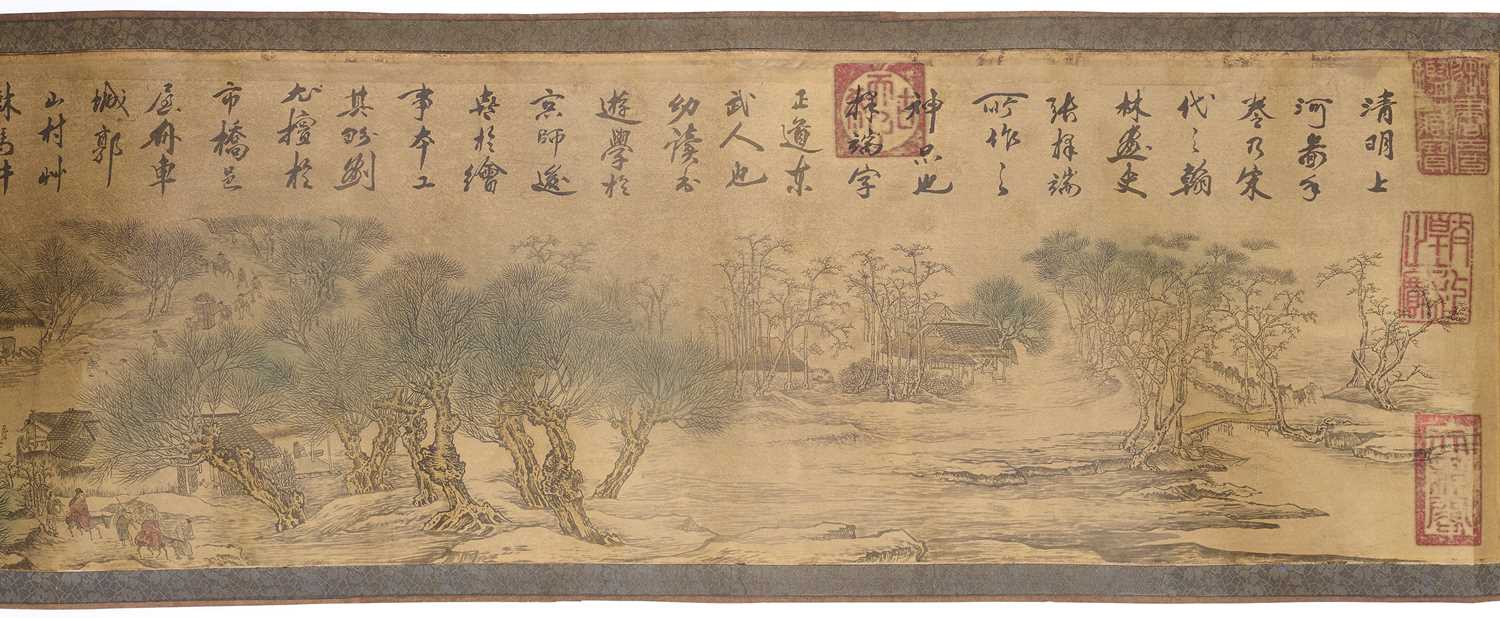 清明上
河圖手
卷乃宋
代之翰
林畫史
張擇端
所作之
神品也
擇端字
正道東
武人也
幼讀書
遊學於
京師後
喜於繪
事本工
其界劃
尤擅於
市橋邑
屋舟車
城郭
山村艸